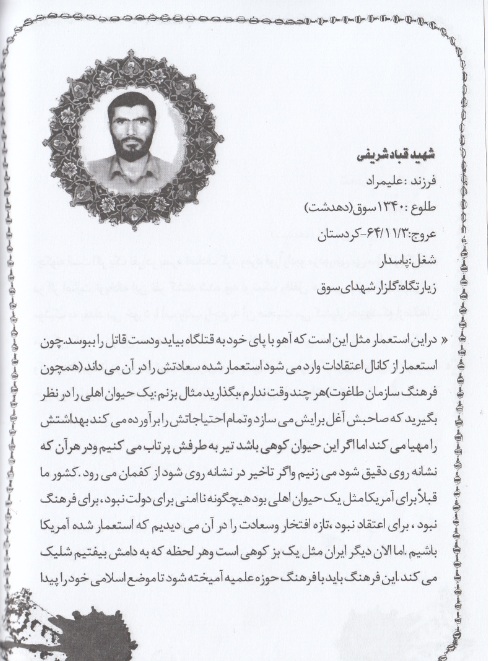 شهید قباد شریفی
فرزند : علیمراد
طلوع : ۱۳۴۰ سوق (دهدشت)
عروج: ۶۴/۱۱/۳-کردستان
شغل: پاسدار
زیارتگاه: گلزار شهدای سوق
« دراین استعمار مثل این است که آهو با پای خود به قتلگاه بیاید ودست قاتل را ببوسد.چون
استعمار از کانال اعتقادات وارد می شود استعمار شده سعادتش را در آن می داند (همچون
فرهنگ سازمان طاغوت)هر چند وقت ندارم ،بگذارید مثال بزنم :یک حیوان اهلی را در نظر
بگیرید که صاحبش آغل برایش می سازد وتمام احتیاجاتش را برآورده می کند بهداشتش
را مهیا می کند اما اگر این حیوان کوهی باشد تیر به طرفش پرتاب می کنیم ودر هر آن که
نشانه روی دقیق شود می زنیم واگر تاخیر در نشانه روی شود از کفمان می رود .کشور ما
قبلاً برای آمریکا مثل یک حیوان اهلی بود هیچگونه نا امنی برای دولت نبود ، برای فرهنگ
نبود ، برای اعتقاد نبود ،تازه افتخار وسعادت را در آن می دیدیم که استعمار شده آمریکا
باشیم .اما الان دیگر ایران مثل یک بز کوهی است وهر لحظه که به دامش بیفتیم شلیک
می کند.این فرهنگ باید با فرهنگ حوزه علمیه آمیخته شود تا موضع اسلامی خود را پیدا